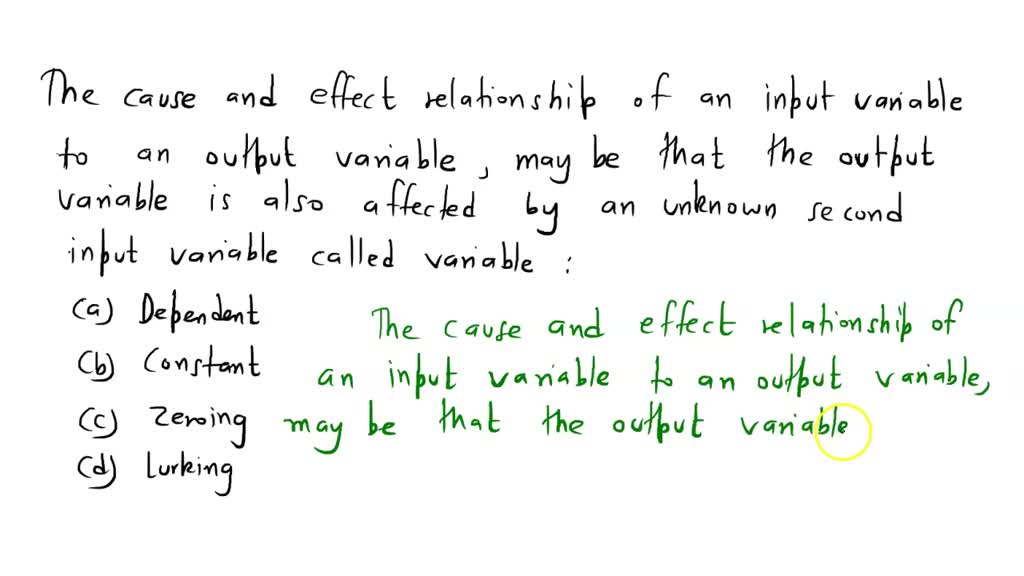 The cause and effect relationship of an input variable
to an output variable, may be that the output
variable is also affected by an unknown second
input variable called variable :
(a) Dependent
(b) Constant
(c) Zeroing
(d) Lurking
The cause and effect relationship of
an input variable to an output variable,
may be that the output variable